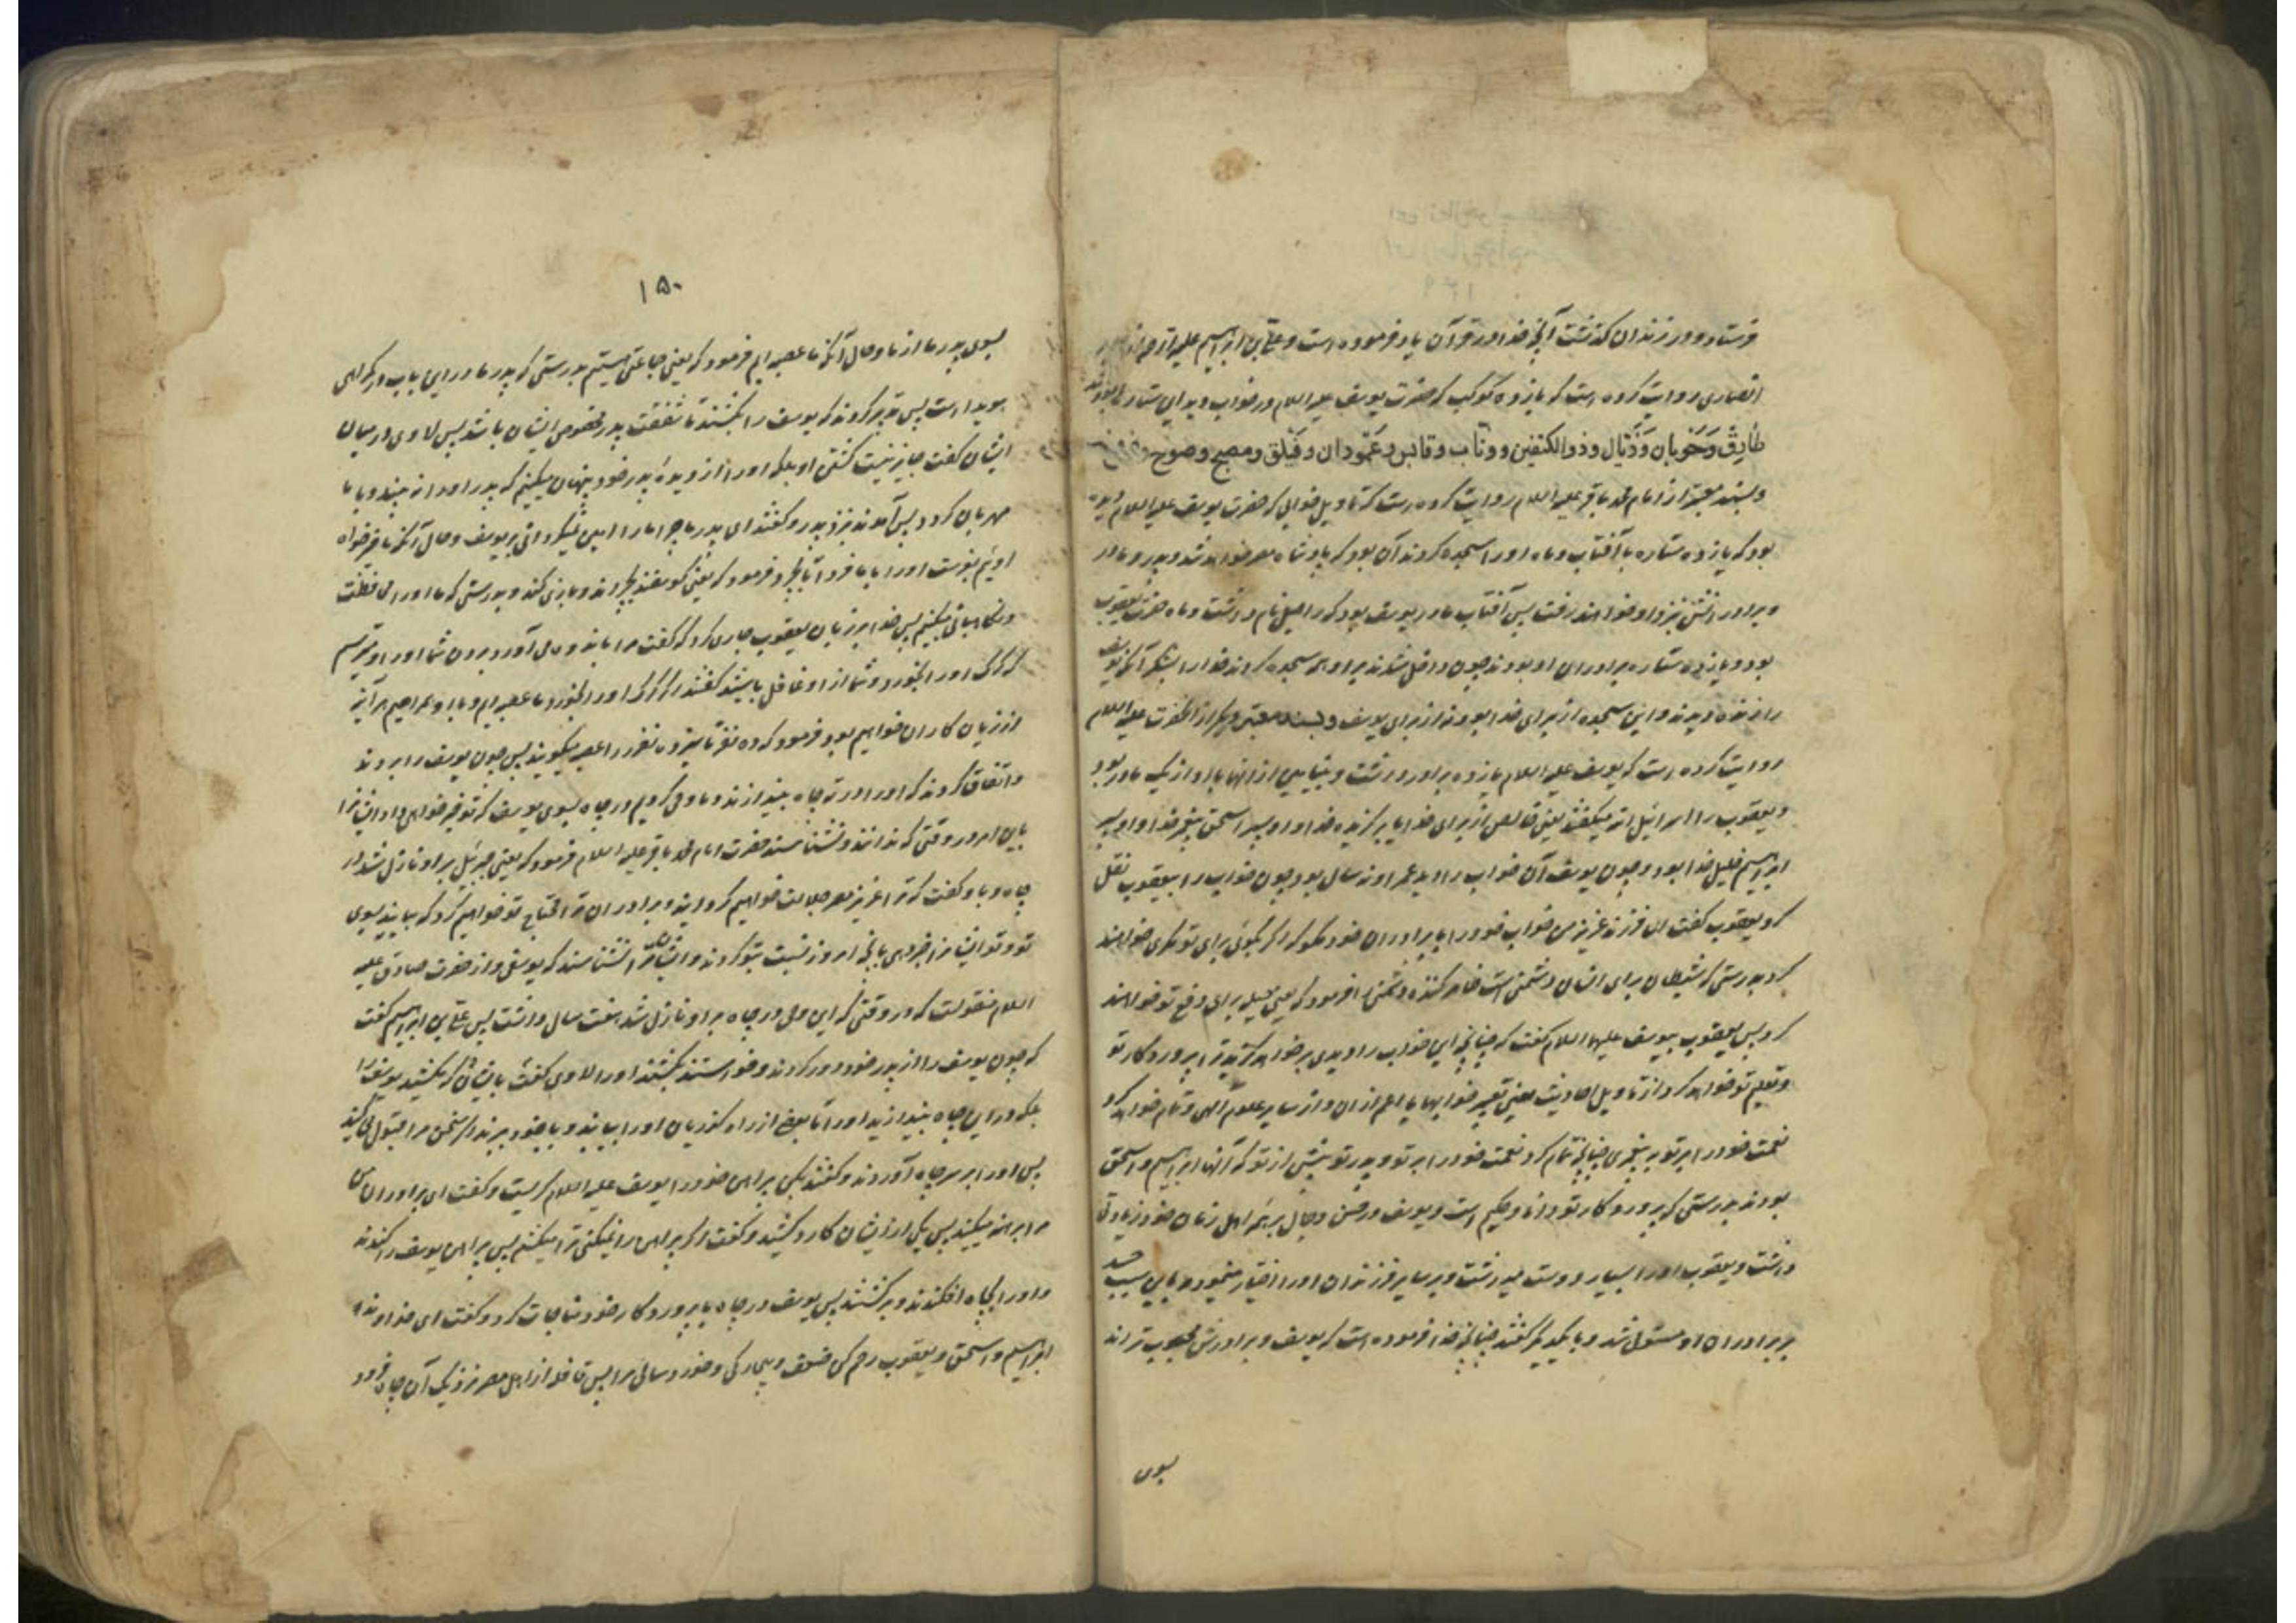 فرستاد و در زندان گذشت آنچه خدا در قرآن یاد فرموده است و علی بن ابراهیم علیه الرحمه از جابر
انصاری روایت کرده است که یازده کوکب که حضرت یوسف علیه السلام در خواب دید این ستارها بودند
طارِق وَحَوبان وَذَیّال وذوالکتفین ووثّاب وقابس وعَمّودان وفَیلَق ومصبح وصوح
و بسند معتبر از امام محمد باقر علیه السلام روایت کرده است که تاویل خوابی که حضرت یوسف علیه السلام دیده
بود که یازده ستاره با آفتاب و ماه او را سجده کردند آن بود که پادشاه مصر خواهد شد و پدر و مادر
و برادرانش نزد او خواهند رفت پس آفتاب مادر یوسف بود که راحیل نام داشت و ماه حضرت یعقوب
بود و یازده ستاره برادران او بودند چون داخل شدند بر او همه سجده کردند خدا را بشکر آنکه یوسف
را زنده دیدند و این سجده از برای خدا بود نه از برای یوسف و بسند معتبر دیگر از آنحضرت علیه السلام
روایت کرده است که یوسف علیه السلام یازده برادر داشت و بنیامین از آنها با او از یک مادر بود
و یعقوب را اسرائیل الله میگفتند یعنی خالص از برای خدا یا برگزیده خدا و او پسر اسحق پیغمبر خدا و او پسر
ابراهیم خلیل خدا بود و چون یوسف آن خواب را دید عمر او نه سال بود چون خواب را بیعقوب نقل
کرد یعقوب گفت ای فرزند عزیز من خواب خود را با برادران خود مگو که اگر بگوئی برای تو مکری خواهند
کرد بدرستی که شیطان برای انسان دشمنی است ظاهر کننده دشمنی را فرمود که یعنی حیله برای دفع تو خواهند
کرد پس یعقوب بیوسف علیهما السلام گفت که چنانچه این خواب را دیدی بر خواهد گزید ترا پروردگار تو
و تعلیم تو خواهد کرد از تاویل احادیث یعنی تعبیر خوابها یا اعم از ان و از سایر علوم الهی و تمام خواهد کرد
نعمت خود را بر تو به پیغمبری چنانچه تمام کرد نعمت خود را بر تو و پدر تو پیش از تو که آنها ابراهیم و اسحق
بودند بدرستی که پروردگار تو دانا و حکیم است و یوسف در حسن و جمال بر همه اهل زمان خود زیادتی
داشت و یعقوب او را بسیار دوست میداشت و بر سایر فرزندان او را اختیار مینمود و باین سبب حسد
بر برادران او مستولی شد و با یکدیگر گفتند چنانچه خدا فرموده است که یوسف و برادرش محبوب تر اند
بسوی
۱۵۰
بسوی پدر ما از ما و حال آنکه ما عصبه ایم فرمود که یعنی جماعتی هستیم بدرستی که پدر ما در این باب در گمراهی
هویدا است پس تدبیر کردند که یوسف را بکشند تا شفقت پدر مخصوص ایشان باشد پس لاوی در میان
ایشان گفت جایز نیست کشتن او بلکه او را از دیدهٔ پدر خود پنهان میکنیم که پدر او را نه بیند و با ما
مهربان گردد پس آمدند نزد پدر و گفتند ای پدر ما چرا ما را امین نمیگردانی بر یوسف و حال آنکه ما خیر خواه
اوئیم بفرست او را با ما فردا تا بچرد فرمود که یعنی گوسفند بچراند و بازی کند و بدرستی که ما او را محافظت
و نگاهبانی میکنیم پس خدا بر زبان یعقوب جاری کرد که گفت مرا باندوه می آورد بردن شما او را و میترسم
که گرگ او را بخورد و شما از او غافل باشید گفتند اگر گرگ او را بخورد ما عصبه ایم و با او همراهیم هر آینه
از زیان کاران خواهیم بود فرمود که ده نفر تا سیزده نفر را عصبه میگویند پس چون یوسف را بردند
و اتفاق کردند که او را در ته چاه بیندازند و ما وحی کردیم در چاه بسوی یوسف که تو خبر خواهی داد ایشانرا
باین امر در وقتی که ندانند و نشناسند حضرت امام محمد باقر علیه السلام فرمود که یعنی جبرئیل بر او نازل شد در
چاه و باو گفت که ترا عزیز مصر جلالت خواهیم گردانید و برادران ترا محتاج تو خواهیم کرد که بیایند بسوی
تو و تو ایشانرا خبر دهی بآنچه امروز نسبت بتو کردند و ایشان ترا نشناسند که یوسفی و از حضرت صادق علیه
السلام منقولست که در وقتی که این وحی در چاه بر او نازل شد هفت سال داشت پس علی بن ابراهیم گفت
که چون یوسف را از پدر خود دور کردند و خواستند بکشند او را لاوی گفت بایشان که مکشید یوسف را
بلکه در این چاه بیندازید او را تا بعضی از راه گذریان او را بیابند و با خود ببرند اگر سخن مرا قبول میکنید
پس او را بر سر چاه آوردند و گفتند بکن پیراهن خود را یوسف علیه السلام گریست و گفت ای برادران من
مرا برهنه میکنید پس یکی از ایشان کارد کشید و گفت اگر پیراهن را نمیکنی ترا میکشم پس پیراهن یوسف را کندند
و او را بچاه افکندند و برگشتند پس یوسف در چاه با پروردگار خود مناجات کرد و گفت ای خداوند
ابراهیم و اسحق و یعقوب رحم کن ضعف و بیچارگی و خورد سالی مرا پس قافله از اهل مصر نزدیک آن چاه فرود